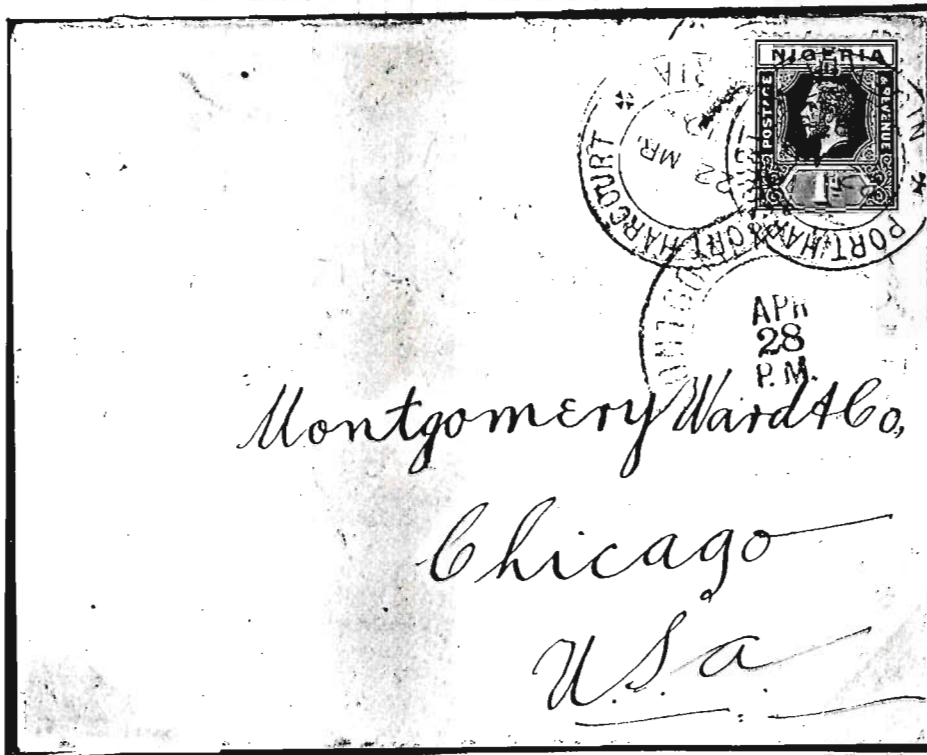 NIGERIA
POSTAGE & REVENUE
1
PORT HARCOURT
22 MR
PORT HAR
NI
APR
28
P.M.
Montgomery Ward & Co,
Chicago
U.S.a.